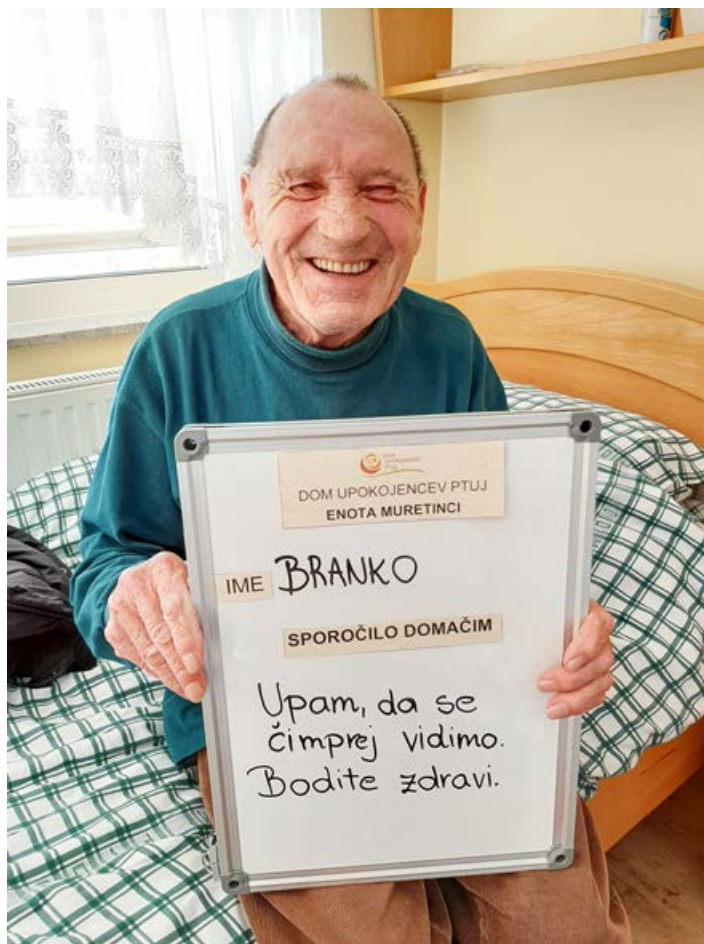 DOM UPOKOJENCEV PTUJ
ENOTA MURETINCI
IME BRANKO
SPOROČILO DOMAČIM
Upam, da se
čimprej vidimo.
Bodite zdravi.